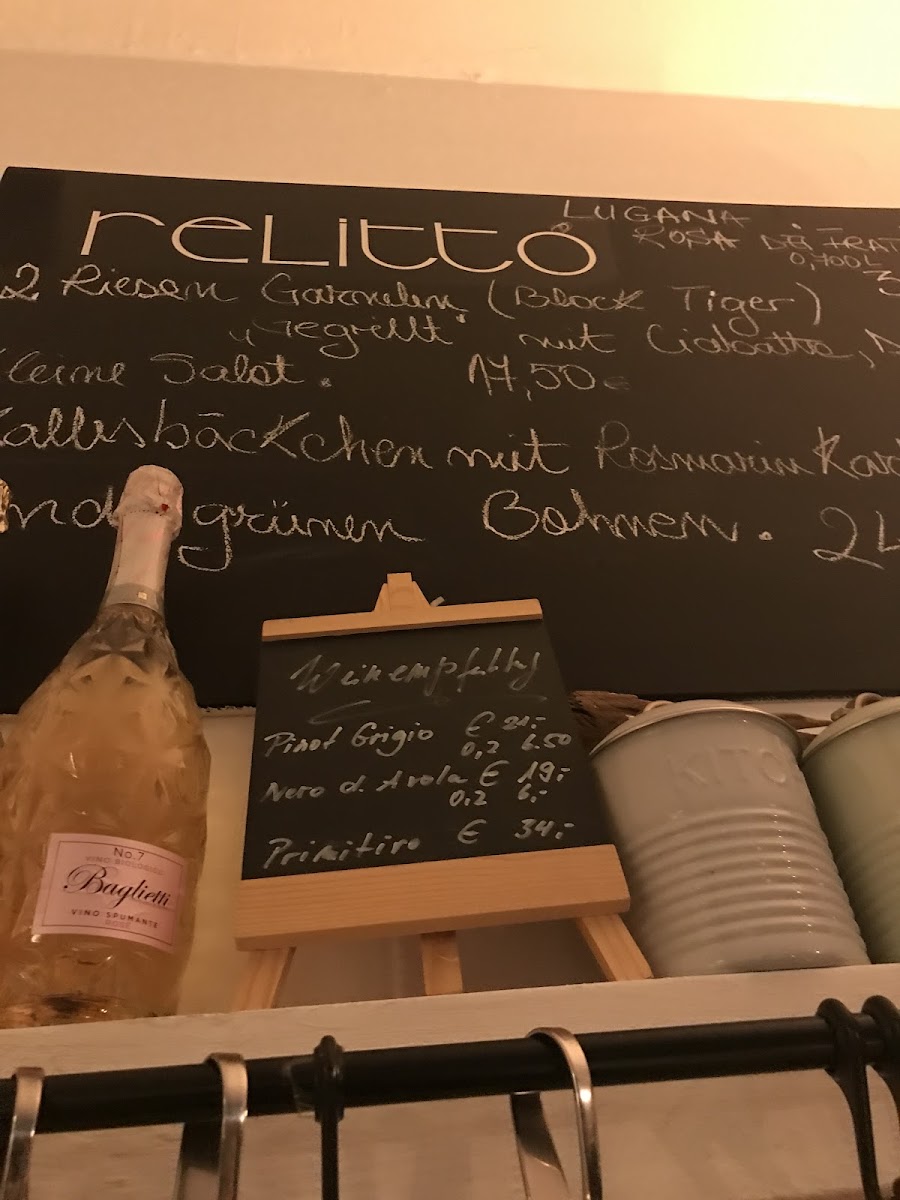 reLitto
LUGANA
ROSA DEI FRAT
0,700L
2 Riesen Garnelen (Block Tiger)
„gegrillt“ mit Ciabatta,
Kleine Salat. 17,50€
Kalbsbäckchen mit Rosmarin Kar
und grünen Bohnen. 24
Weinempfehlung
Pinot Grigio € 21,-
0,2 6.50
Nero d. Avola € 19,-
0,2 6,-
Primitivo € 34,-
KITO
No.7
VINO BIOLOGICO
Baglietti
VINO SPUMANTE
ROSÉ